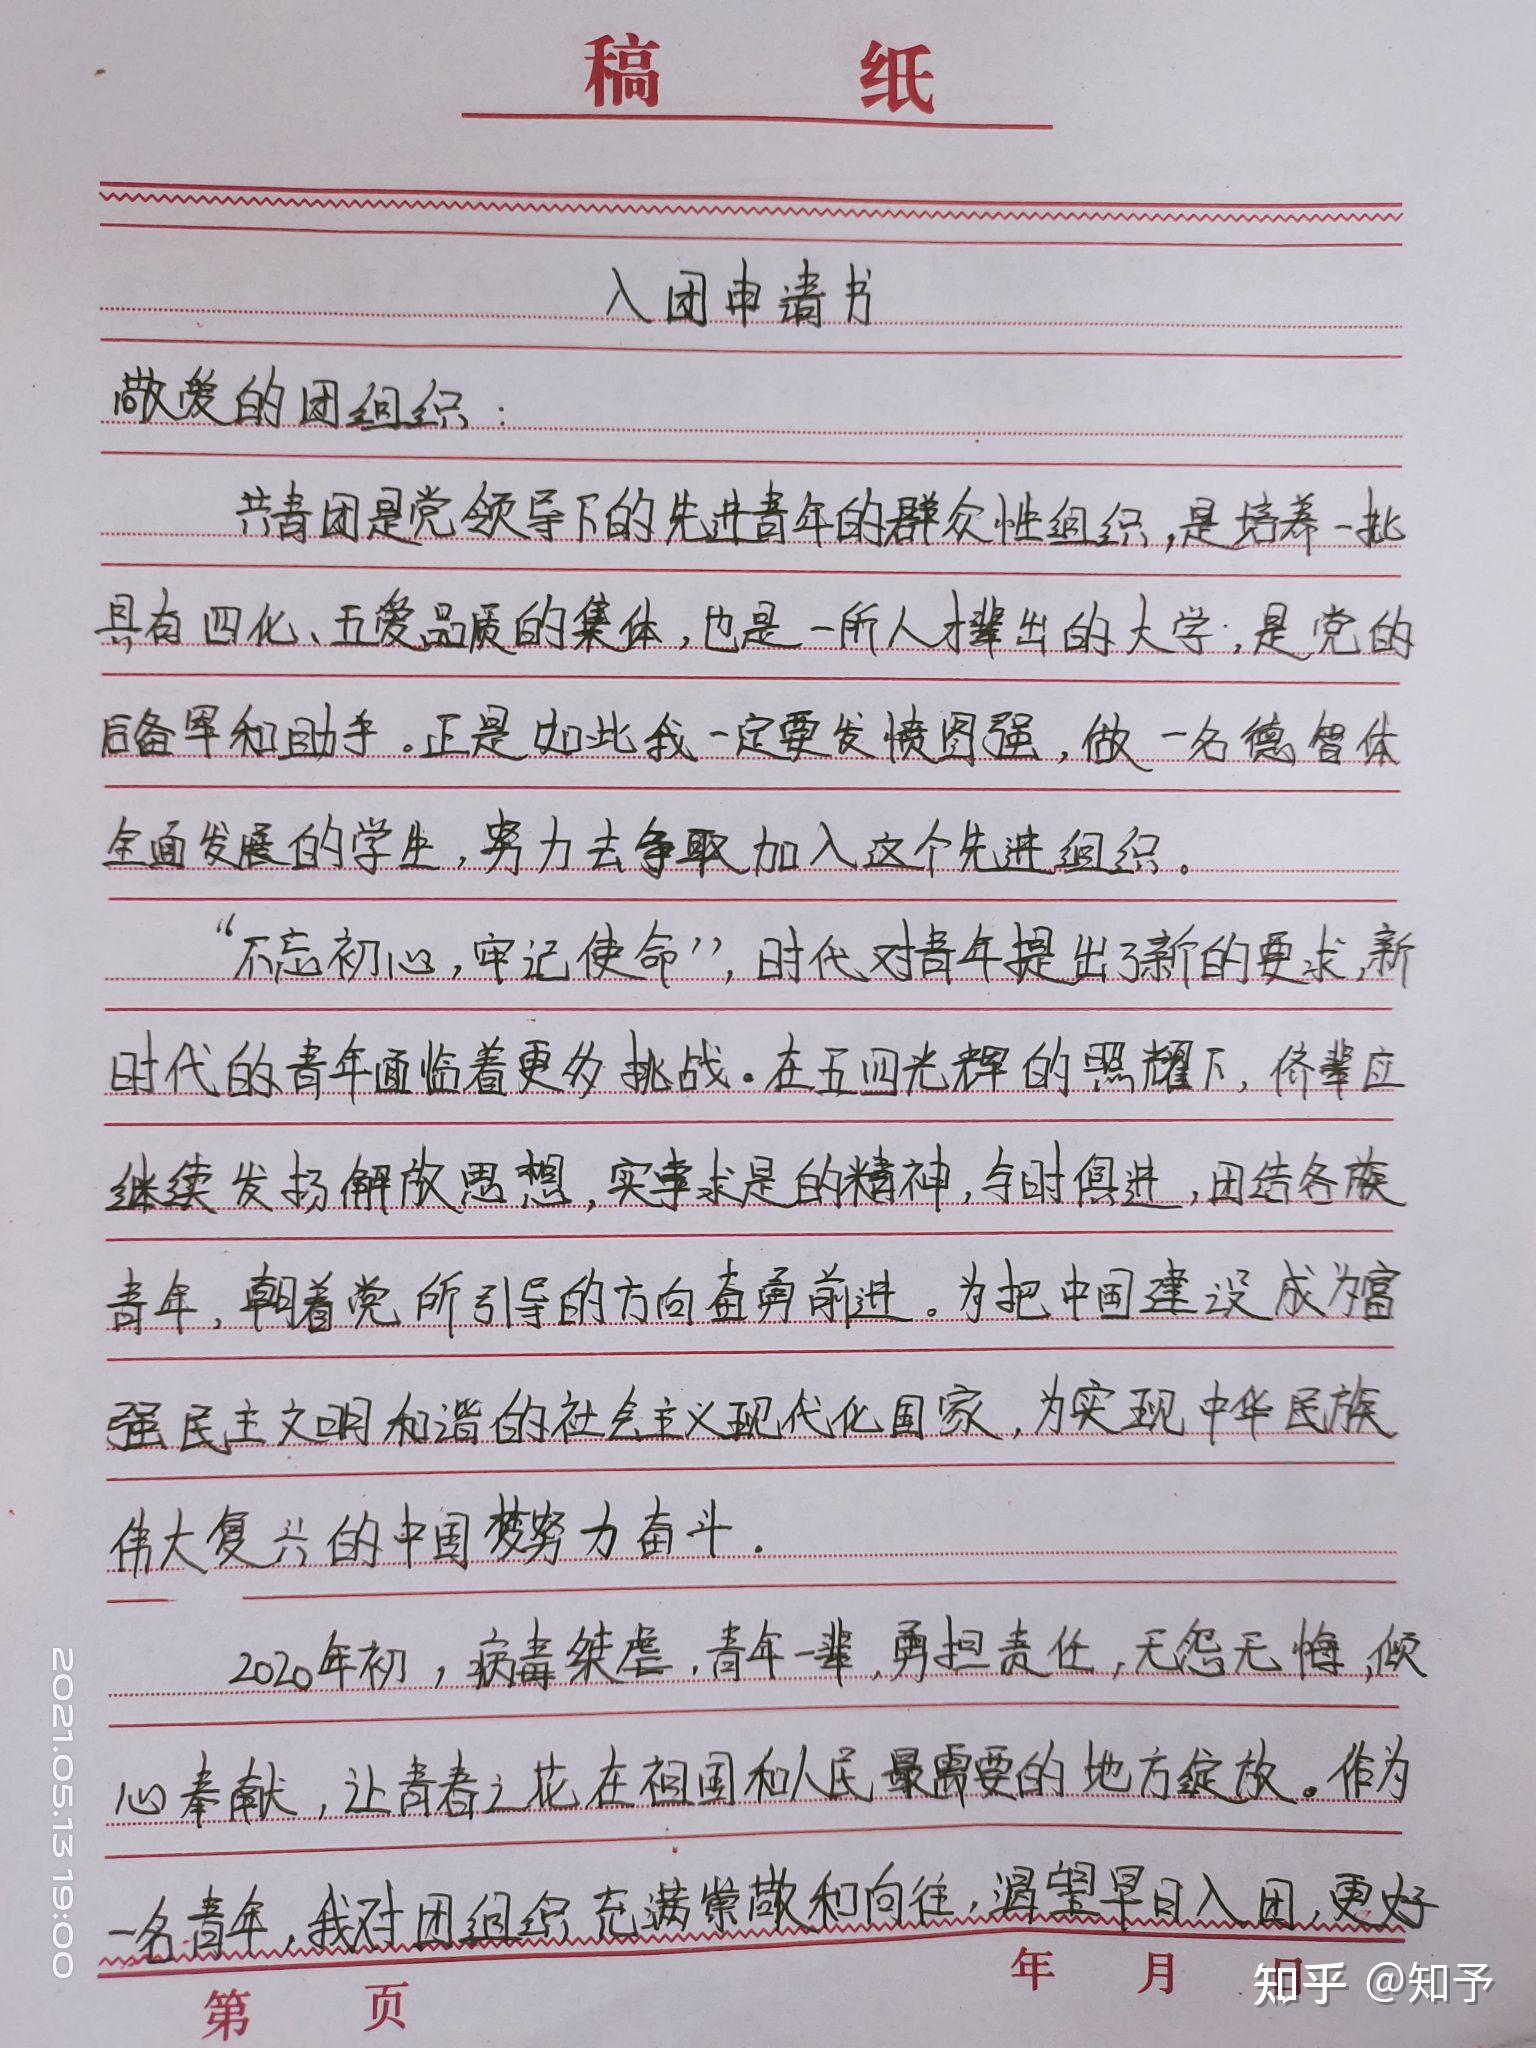 稿 纸
入团申请书
敬爱的团组织:
共青团是党领导下的先进青年的群众性组织,是培养一批
具有四化、五爱品质的集体,也是一所人才辈出的大学,是党的
后备军和助手。正是如此我一定要发愤图强,做一名德智体
全面发展的学生,努力去争取加入这个先进组织。
“不忘初心,牢记使命”,时代对青年提出了新的要求,新
时代的青年面临着更多挑战。在五四光辉的照耀下,侪辈应
继续发扬解放思想,实事求是的精神,与时俱进,团结各族
青年,朝着党所引导的方向奋勇前进。为把中国建设成为富
强民主文明和谐的社会主义现代化国家,为实现中华民族
伟大复兴的中国梦努力奋斗.
2020年初,病毒桀虐,青年一辈,勇担责任,无怨无悔,倾
心奉献,让青春之花在祖国和人民最需要的地方绽放。作为
一名青年,我对团组织充满崇敬和向往,渴望早日入团,更好
第 页 年 月 日
知乎 @知予
2021.05.13 19:00